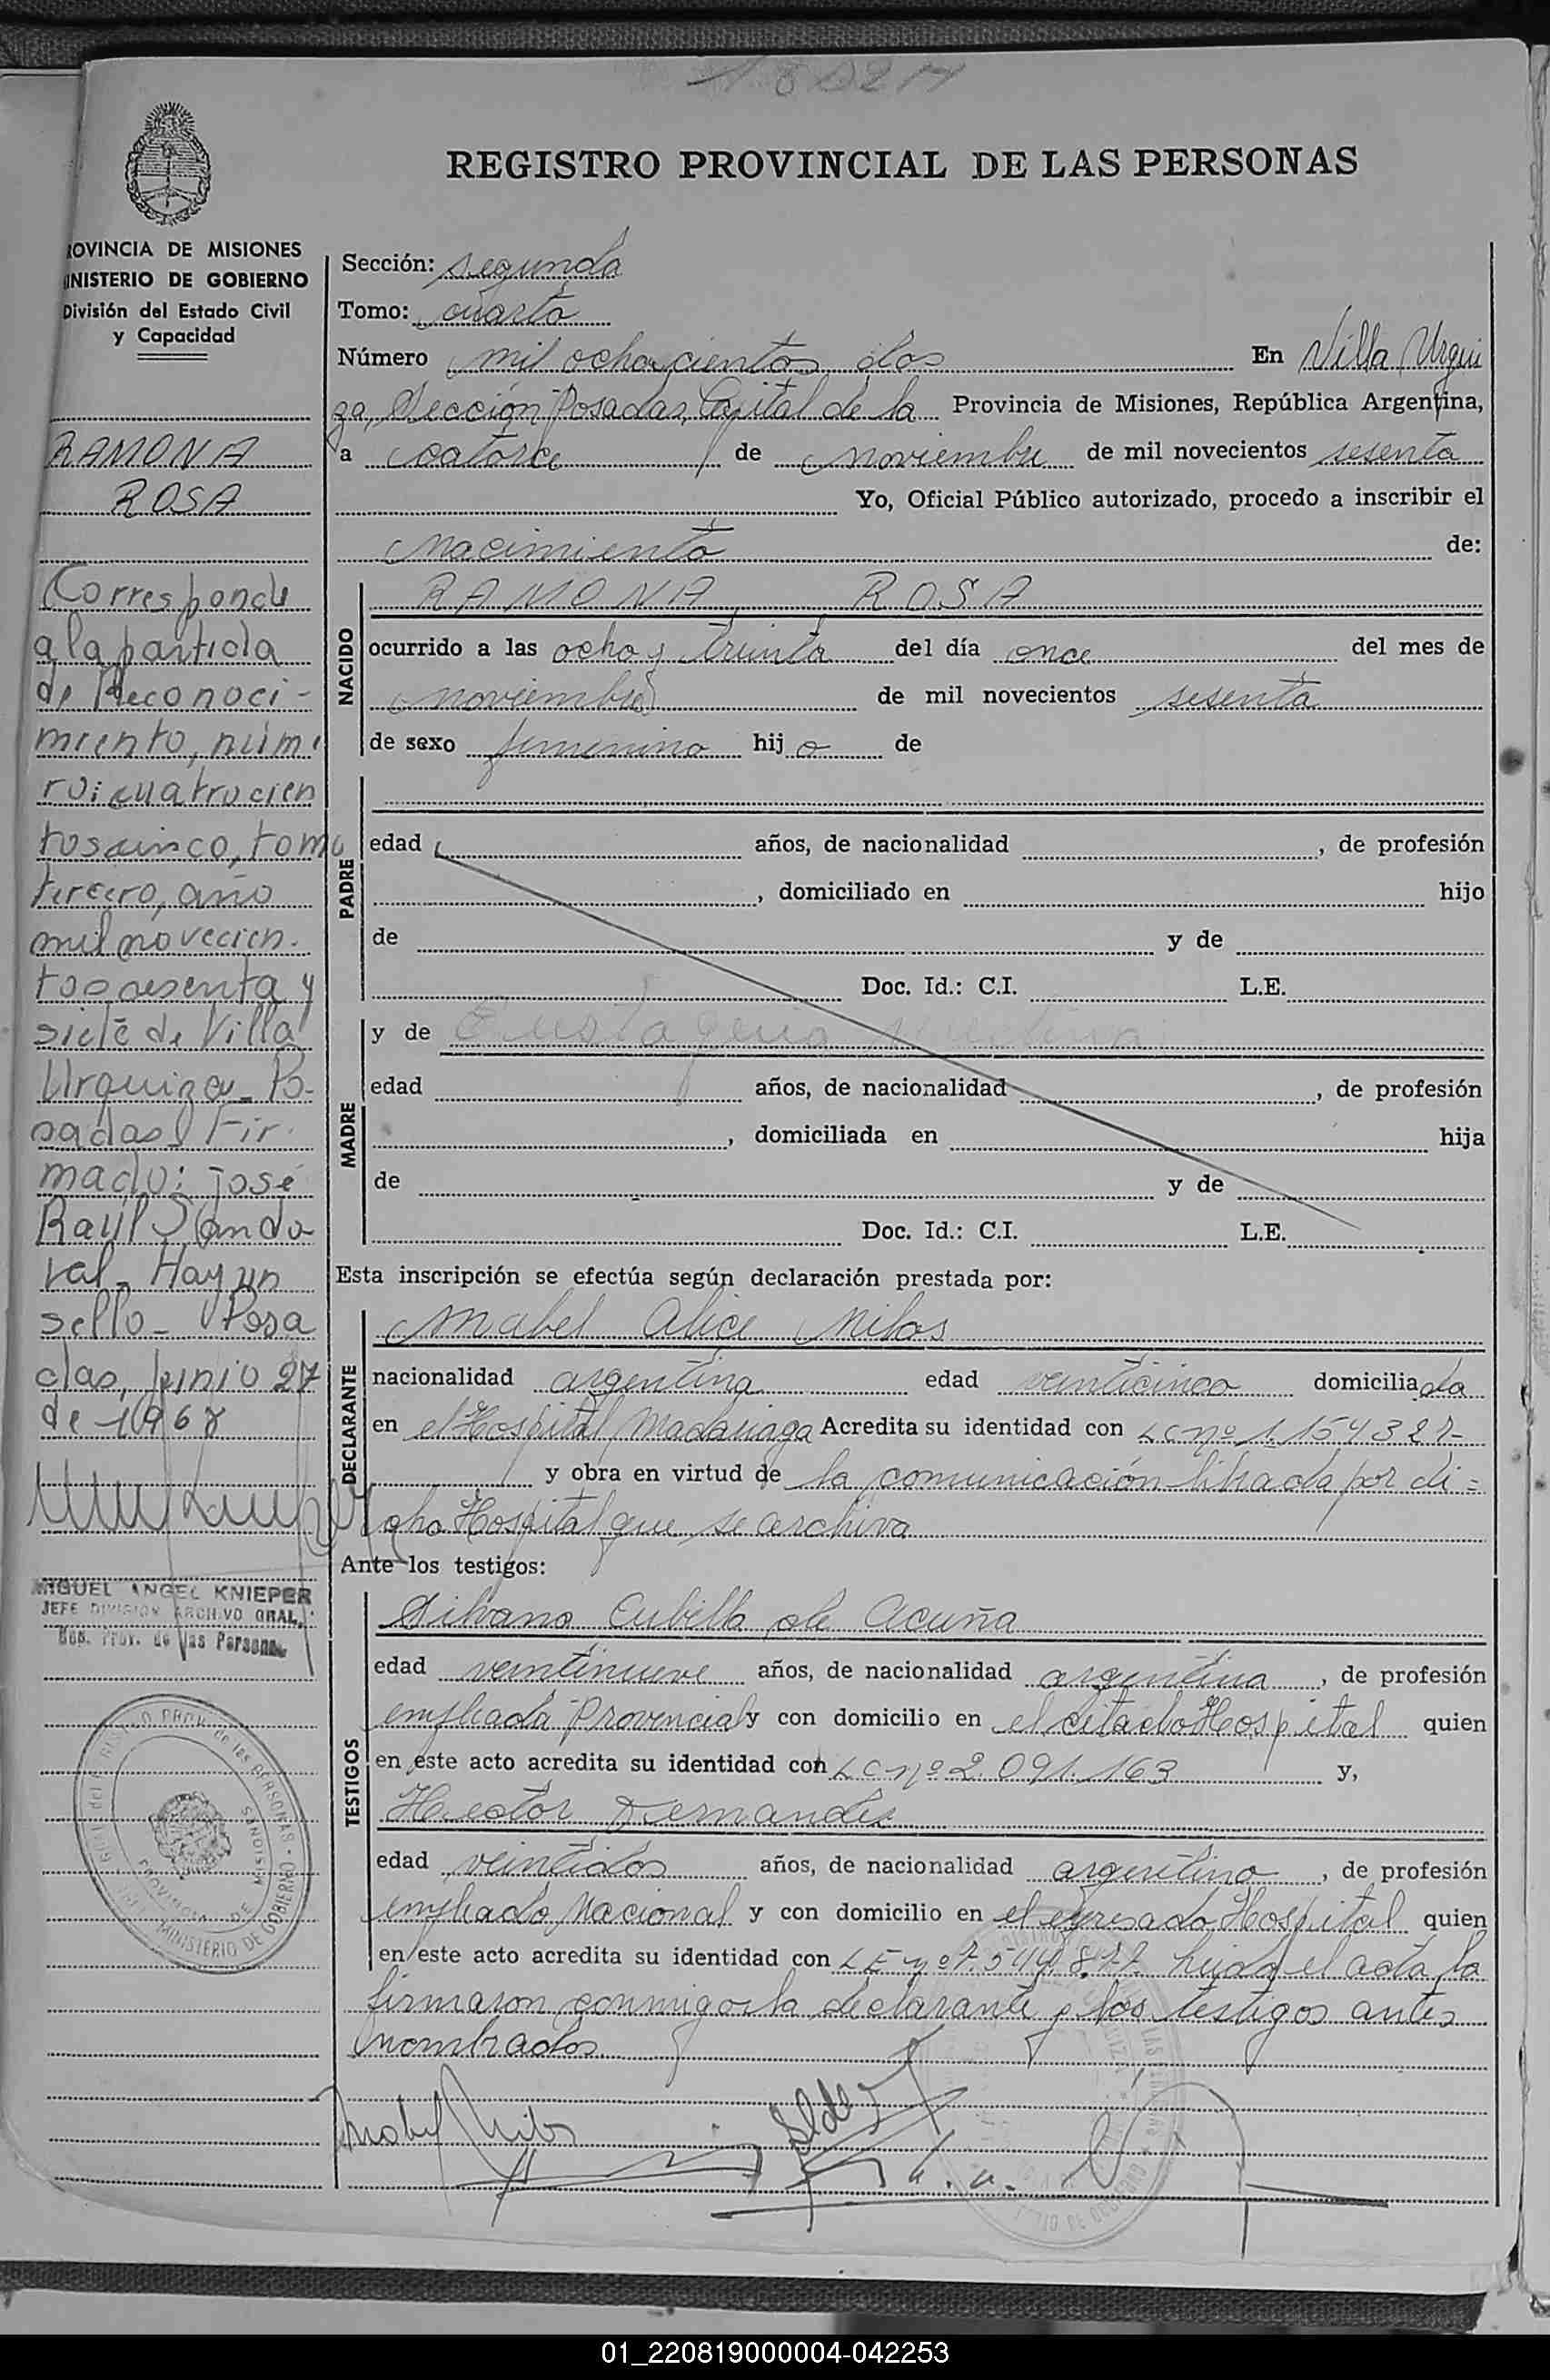 REGISTRO PROVINCIAL DE LAS PERSONAS
ROVINCIA DE MISIONES
INISTERIO DE GOBIERNO
División del Estado Civil
y Capacidad
RAMONA
ROSA
Corresponde
a la partida
de Reconoci-
miento, núme
ro: cuatrocien
tos cinco, tomo
tercero, año
mil novecien.
tos sesenta y
siete de Villa
Urquiza - Po-
sadas. Fir.
mado: José
Raúl Sando
val - Hay un
sello - Posa
das, junio 27
de 1968
MIGUEL ANGEL KNIEPER
JEFE DIVISION ARCHIVO GRAL.
Reg. Prov. de las Personas
Sección: segunda
Tomo: cuarto
Número mil ochocientos dos En Villa Urqui
za, Sección Posadas, Capital de la Provincia de Misiones, República Argentina,
a catorce de noviembre de mil novecientos sesenta
Yo, Oficial Público autorizado, procedo a inscribir el
nacimiento de:
NACIDO
RAMONA ROSA
ocurrido a las ocho y treinta del día once del mes de
noviembre de mil novecientos sesenta
de sexo femenino hijo de
PADRE
edad años, de nacionalidad , de profesión
, domiciliado en hijo
de y de
Doc. Id.: C.I. L.E.
MADRE
y de Eustaquia
edad años, de nacionalidad , de profesión
, domiciliada en hija
de y de
Doc. Id.: C.I. L.E.
Esta inscripción se efectúa según declaración prestada por:
DECLARANTE
Mabel Alice Milos
nacionalidad argentina edad veinticinco domiciliada
en el Hospital Madariaga Acredita su identidad con LC nº 1.154.327-
y obra en virtud de la comunicación librada por di=
cho Hospital que se archiva
Ante los testigos:
TESTIGOS
Silvana Cubilla de Acuña
edad veintinueve años, de nacionalidad argentina, de profesión
empleada Provincial y con domicilio en el citado Hospital quien
en este acto acredita su identidad con LC nº 2.091.163 y,
Hector Fernandez
edad veintidos años, de nacionalidad argentino, de profesión
empleado Nacional y con domicilio en el expresado Hospital quien
en este acto acredita su identidad con LE nº 7.544.877. Leida el acta, la
firmaron conmigo la declarante y los testigos antes
nombrados
01_220819000004-042253